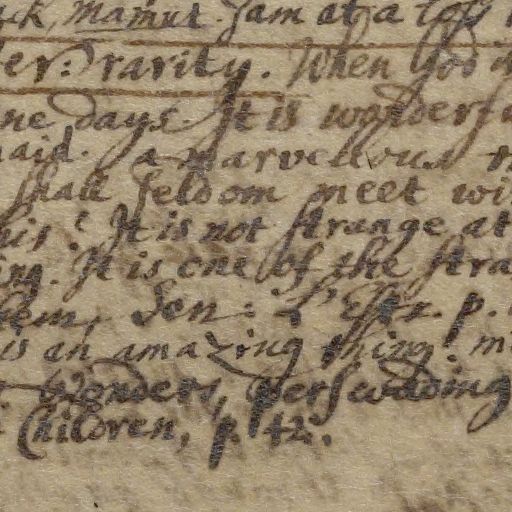 Mamut. I am at a loss
der: rarity. When God
ne days. It is wonderf
said. a marvellous
shall seldom meet wi
his? It is not strange at
ing. It is one of the stra
them, Sen: L'Estr. p.
is an amazing thing! mi
Wonders, perswading
Children, p. 42.